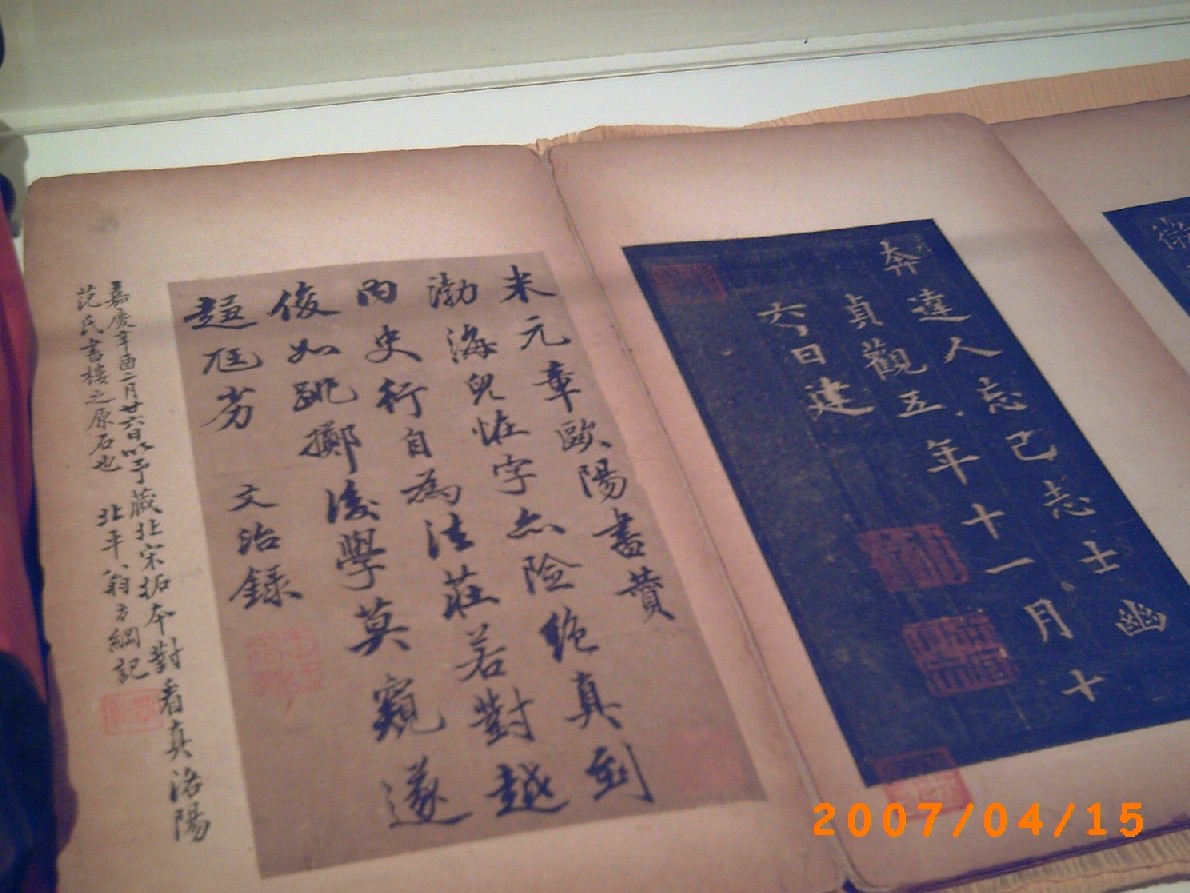 奔達人忘己志士幽
貞觀五年十一月十
六日建
米元章歐陽書贊
渤海光怪字亦險絶真到
內史行自為法莊若對越
俊如跳擲後學莫窺遂
趨尫劣 文治錄
嘉慶辛酉二月廿六日以予藏北宋拓本對看真洛陽
范氏書樓之原石也 北平翁方綱記
2007/04/15